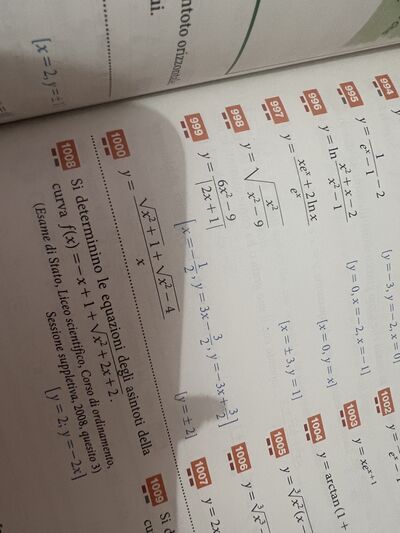 ntoto orizzontale
ui.
994
[y = -3, y = -2, x = 0]
995 y = 1/(e^x - 1) - 2
996 y = ln (x² + x - 2)/(x² - 1)
[y = 0, x = -2, x = -1]
997 y = (xe^x + 2 ln x)/e^x
[x = 0, y = x]
998 y = √(x²/(x² - 9))
[x = ±3, y = 1]
999 y = (6x² - 9)/|2x + 1|
[x = -1/2, y = 3x - 3/2, y = -3x + 3/2]
1000 y = (√(x² + 1) + √(x² - 4))/x
[y = ±2]
1008 Si determinino le equazioni degli asintoti della
curva f(x) = -x + 1 + √(x² + 2x + 2).
(Esame di Stato, Liceo scientifico, Corso di ordinamento,
Sessione suppletiva, 2008, quesito 3)
[y = 2; y = -2x]
1002
1003 y = xe^(x+1)
1004 y = arctan(1 +
1005 y = ∛(x²(x
1006
1007 y = 2x
1009 Si d
cu